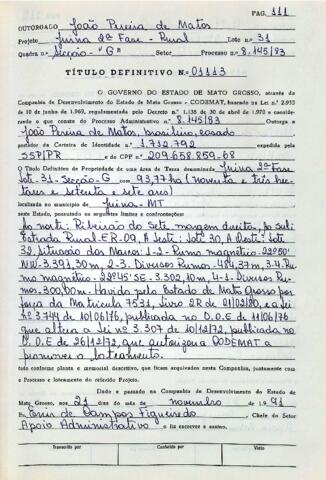 PAG. 111
OUTORGADO João Pereira de Matos
Projeto Juina 2ª Fase - Rural Lote n.º 31
Quadra n.º Secção "G" Setor Processo n.º 8.145/83
TÍTULO DEFINITIVO N.º 01113
O GOVERNO DO ESTADO DE MATO GROSSO, através da
Companhia de Desenvolvimento do Estado de Mato Grosso - CODEMAT, baseado na Lei n.º 2.953
de 10 de junho de 1.969, regulamentada pelo Decreto n.º 1.138 de 30 de abril de 1.970 e considerando
o que consta do Processo Administrativo n.º 8.145/83 Outorga a
João Pereira de Matos, brasileiro, casado
portador da Carteira de Identidade n.º 1.712.792 expedida pela
SSP/PR e do CPF n.º 209.658.859-68
O Título Definitivo de Propriedade de uma Área de Terras denominada Juina 2ª Fase
Lote-31-Secção-G com 93,77 ha (Noventa e três hec-
tares e setenta e sete ares)
localizada no município de Juina-MT
neste Estado, possuindo os seguintes limites e confrontações:
Ao norte: Ribeirão do Sete margem direita, Ao Sul:
Estrada Rural-ER-09, A Leste: Lote 30, A Oeste: Lote
32. Situação dos Marcos: 1-2-Rumo magnético-22º50'
NW-3.391,30 m, 2-3-Diversos Rumos-484,37m, 3-4-Ru-
mo magnético-22º45'SE-3.302,10m, 4-1-Diversos Ru-
mos-300,00m. Havido pelo Estado de Mato Grosso por
força da Matricula 7531, Livro 2R de 01/02/80, e a Lei
nº 3.744 de 10/06/76, publicada no D.O.E de 11/06/76
que altera a Lei nº 3.307 de 10/12/72, publicada no
D.O.E de 26/12/72, que autorizou a CODEMAT a
promover o loteamento.
tudo conforme planta e memorial descritivo, que ficam arquivados nesta Companhia, juntamente com
o Processo e loteamento do referido Projeto.
Dado e passado na Companhia de Desenvolvimento do Estado de
Mato Grosso, aos 21 dias do mês de novembro de 1.991
Eu de Campos Figueiredo Chefe do Setor
Apoio Administrativo o fiz escrever e assino.
Transcrito por Conferido por Visto